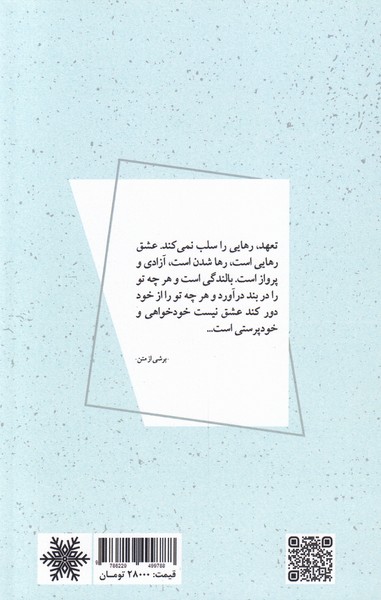 تعهد، رهایی را سلب نمی‌کند. عشق
رهایی است، رها شدن است، آزادی و
پرواز است. بالندگی است و هر چه تو
را در بند درآورد و هر چه تو را از خود
دور کند عشق نیست خودخواهی و
خودپرستی است...
-برشی از متن-
9 786220 499788
قیمت: ۲۸۰۰۰ تومـان